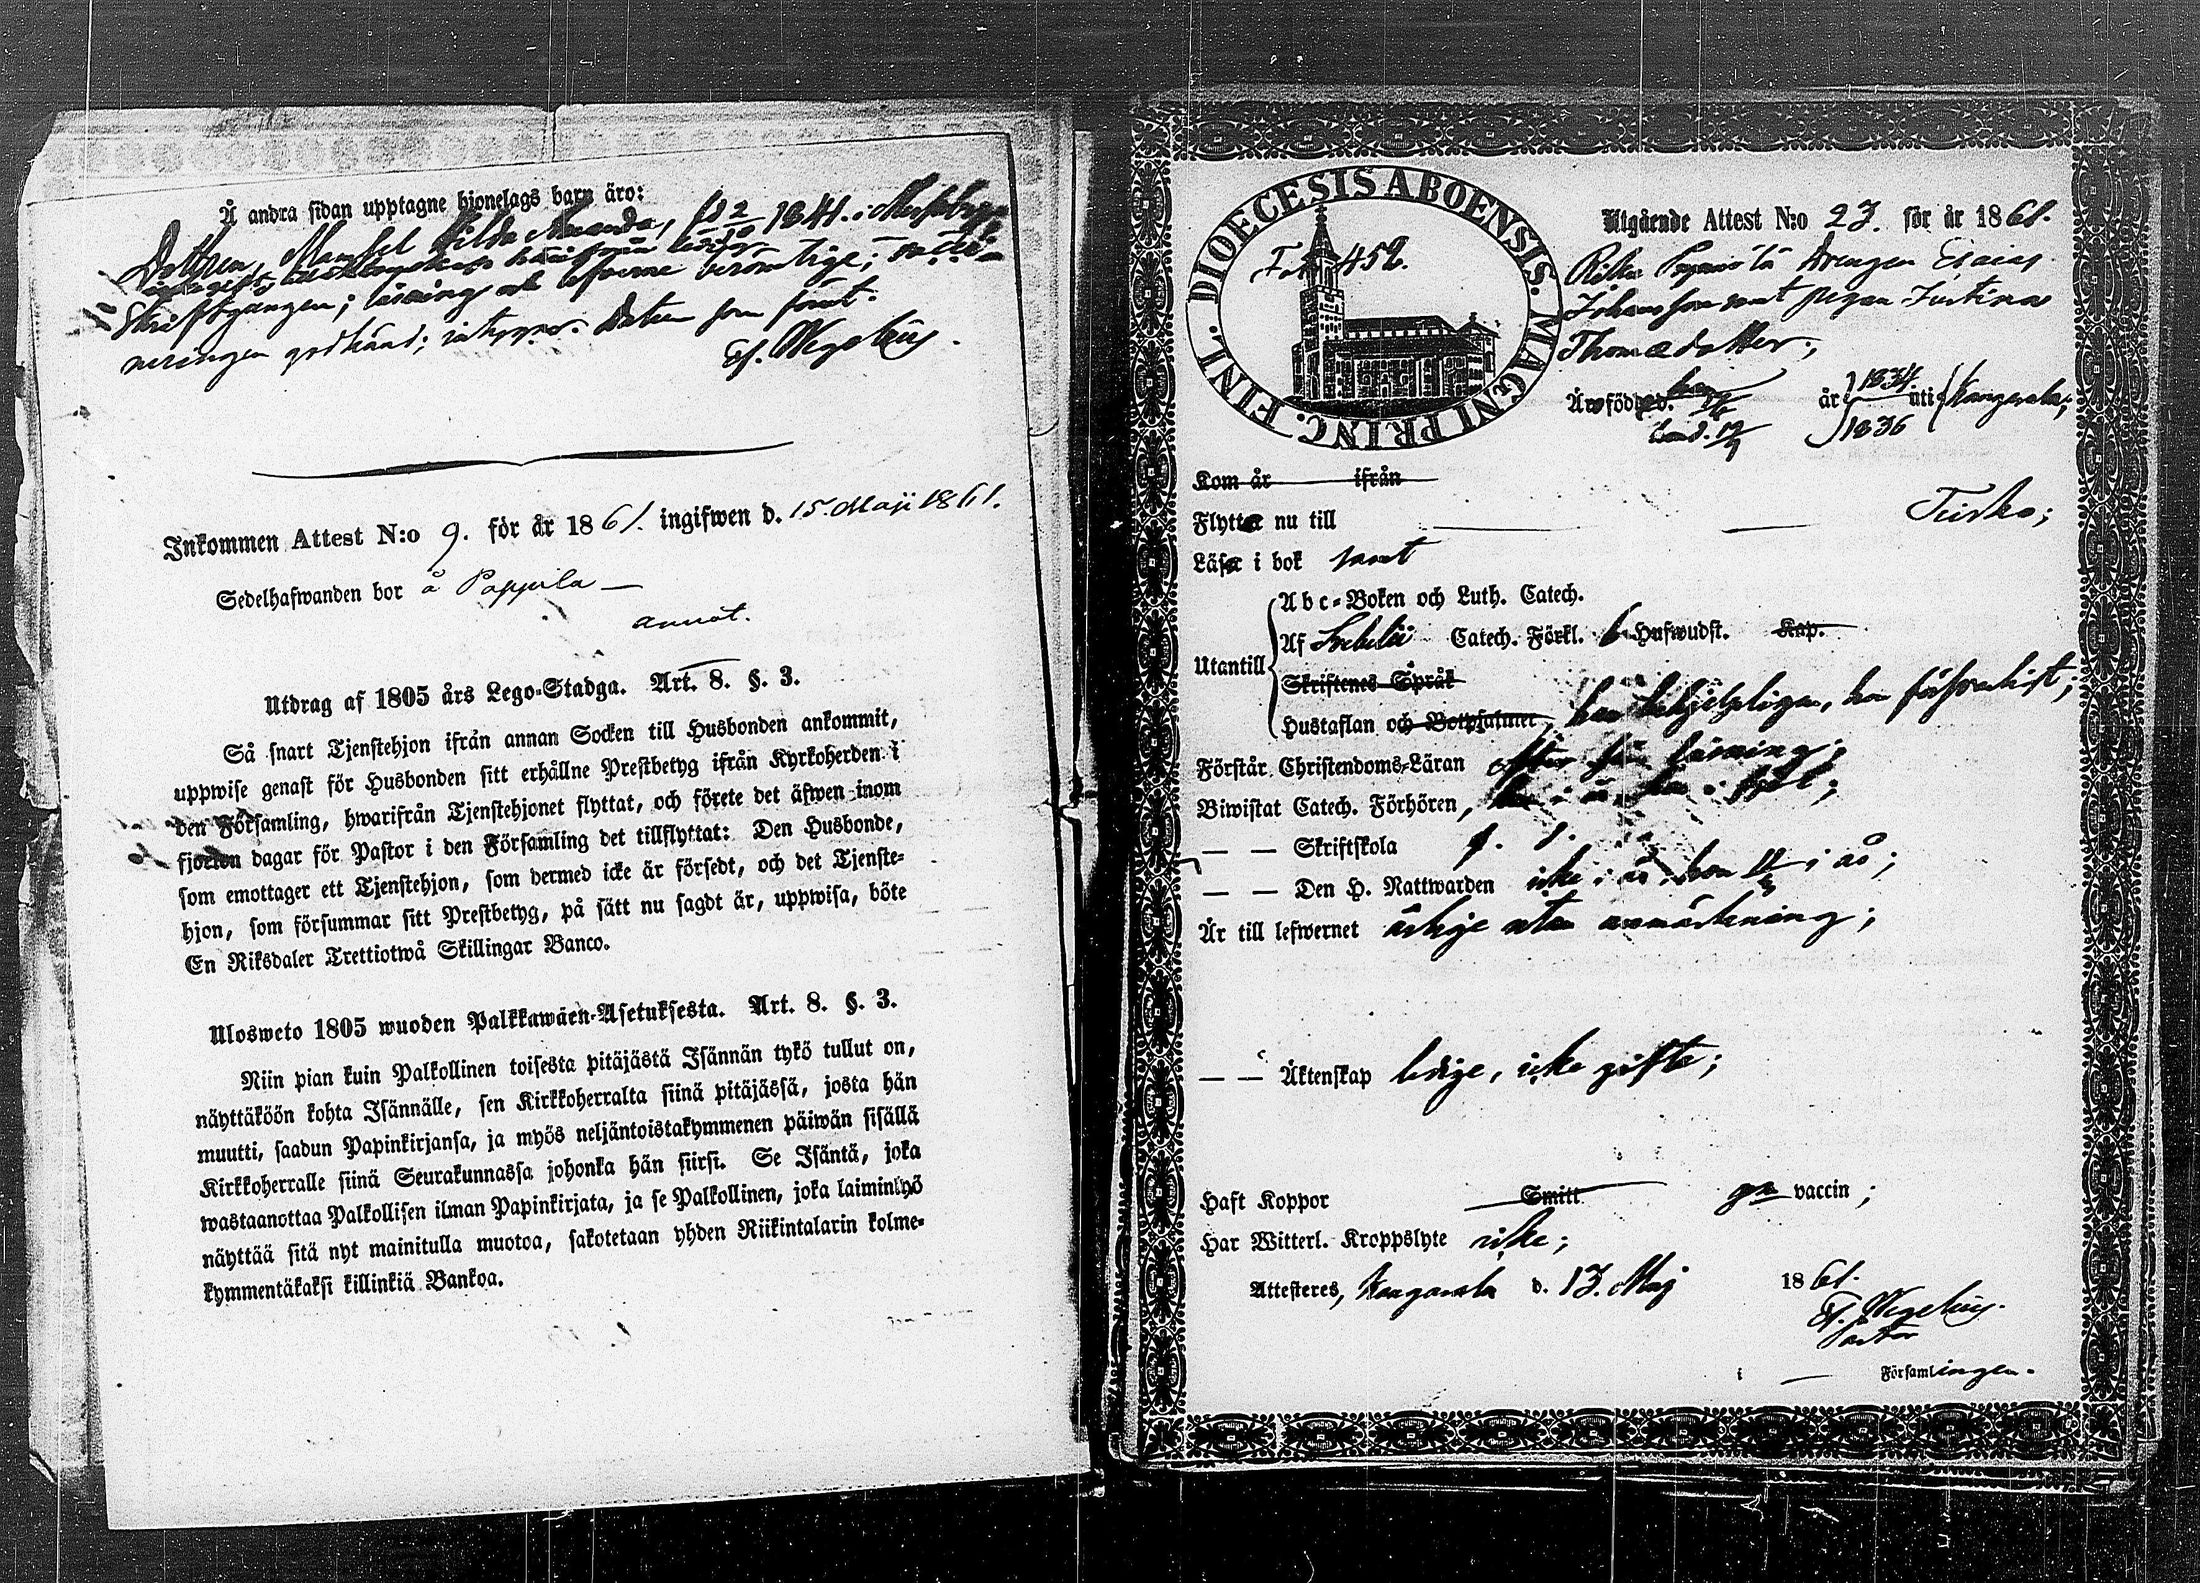 Å andra sidan upptagne hjonelags barn äro:
Dottren, Mamsel Hilda Amanda, född 2/10 1841. i
Skriftgången; läsning och lefverne berömlige;
neringen godkänd; Datum som förut.
Wegelius.
Inkommen Attest N:o 9. för år 1861. ingifwen d. 15. Maji 1861.
Sedelhafwanden bor å Pappila —
annot.
Utdrag af 1805 års Lego-Stadga. Art. 8. §. 3.
Så snart Tjenstehjon ifrån annan Socken till Husbonden ankommit,
uppwise genast för Husbonden sitt erhållne Prestbetyg ifrån Kyrkoherden i
den Församling, hwarifrån Tjenstehjonet flyttat, och förete det äfwen inom
fjorton dagar för Pastor i den Församling det tillflyttat: Den Husbonde,
som emottager ett Tjenstehjon, som dermed icke är försedt, och det Tjenste-
hjon, som försummar sitt Prestbetyg, på sätt nu sagdt är, uppwisa, böte
En Riksdaler Trettiotwå Skillingar Banco.
Ulosweto 1805 wuoden Palkkawäen-Asetuksesta. Art. 8. §. 3.
Niin pian kuin Palkollinen toisesta pitäjästä Isännän tykö tullut on,
näyttäköön kohta Isännälle, sen Kirkkoherralta siinä pitäjässä, josta hän
muutti, saadun Papinkirjansa, ja myös neljäntoistakymmenen päiwän sisällä
Kirkkoherralle siinä Seurakunnassa johonka hän siirsi. Se Isäntä, joka
wastaanottaa Palkollisen ilman Papinkirjata, ja se Palkollinen, joka laiminlyö
näyttää sitä nyt mainitulla muotoa, sakotetaan yhden Riikintalarin kolme-
kymmentäkaksi killinkiä Bankoa.
DIOECESIS ABOENSIS. MAGNI PRINC. FINL.
Fol. 452.
Utgående Attest N:o 23. för år 1861.
Drengen Esaias
Johansson samt pigan Justina
Thomædotter;
Äro födde d. han år 1834. uti Kangasala;
hon d. 12/9 1836
Kom år ifrån
Flyttar nu till — — Teisko;
Läsa i bok samt
Utantill
Abc-Boken och Luth. Catech.
Af Svebelii Catech. Förkl. 6 Hufwudst. Kap.
Skriftenes Språk
Hustaflan och Botpsalmer, han behjelpligen, hon försvarligt;
Förstår Christendoms-Läran efter sin läsning;
Biwistat Catech. Förhören,
— — Skriftskola
— — Den H. Nattwarden icke i år, hon i år;
Är till lefwernet ärlige utan anmärkning;
— — Äktenskap ledige, icke gifte;
Haft Koppor Smitt gm vaccin;
Har Witterl. Kroppslyte icke;
Attesteres, Kangasala d. 13. Maj 1861.
Wegelius.
Pastor
i — Församlingen.